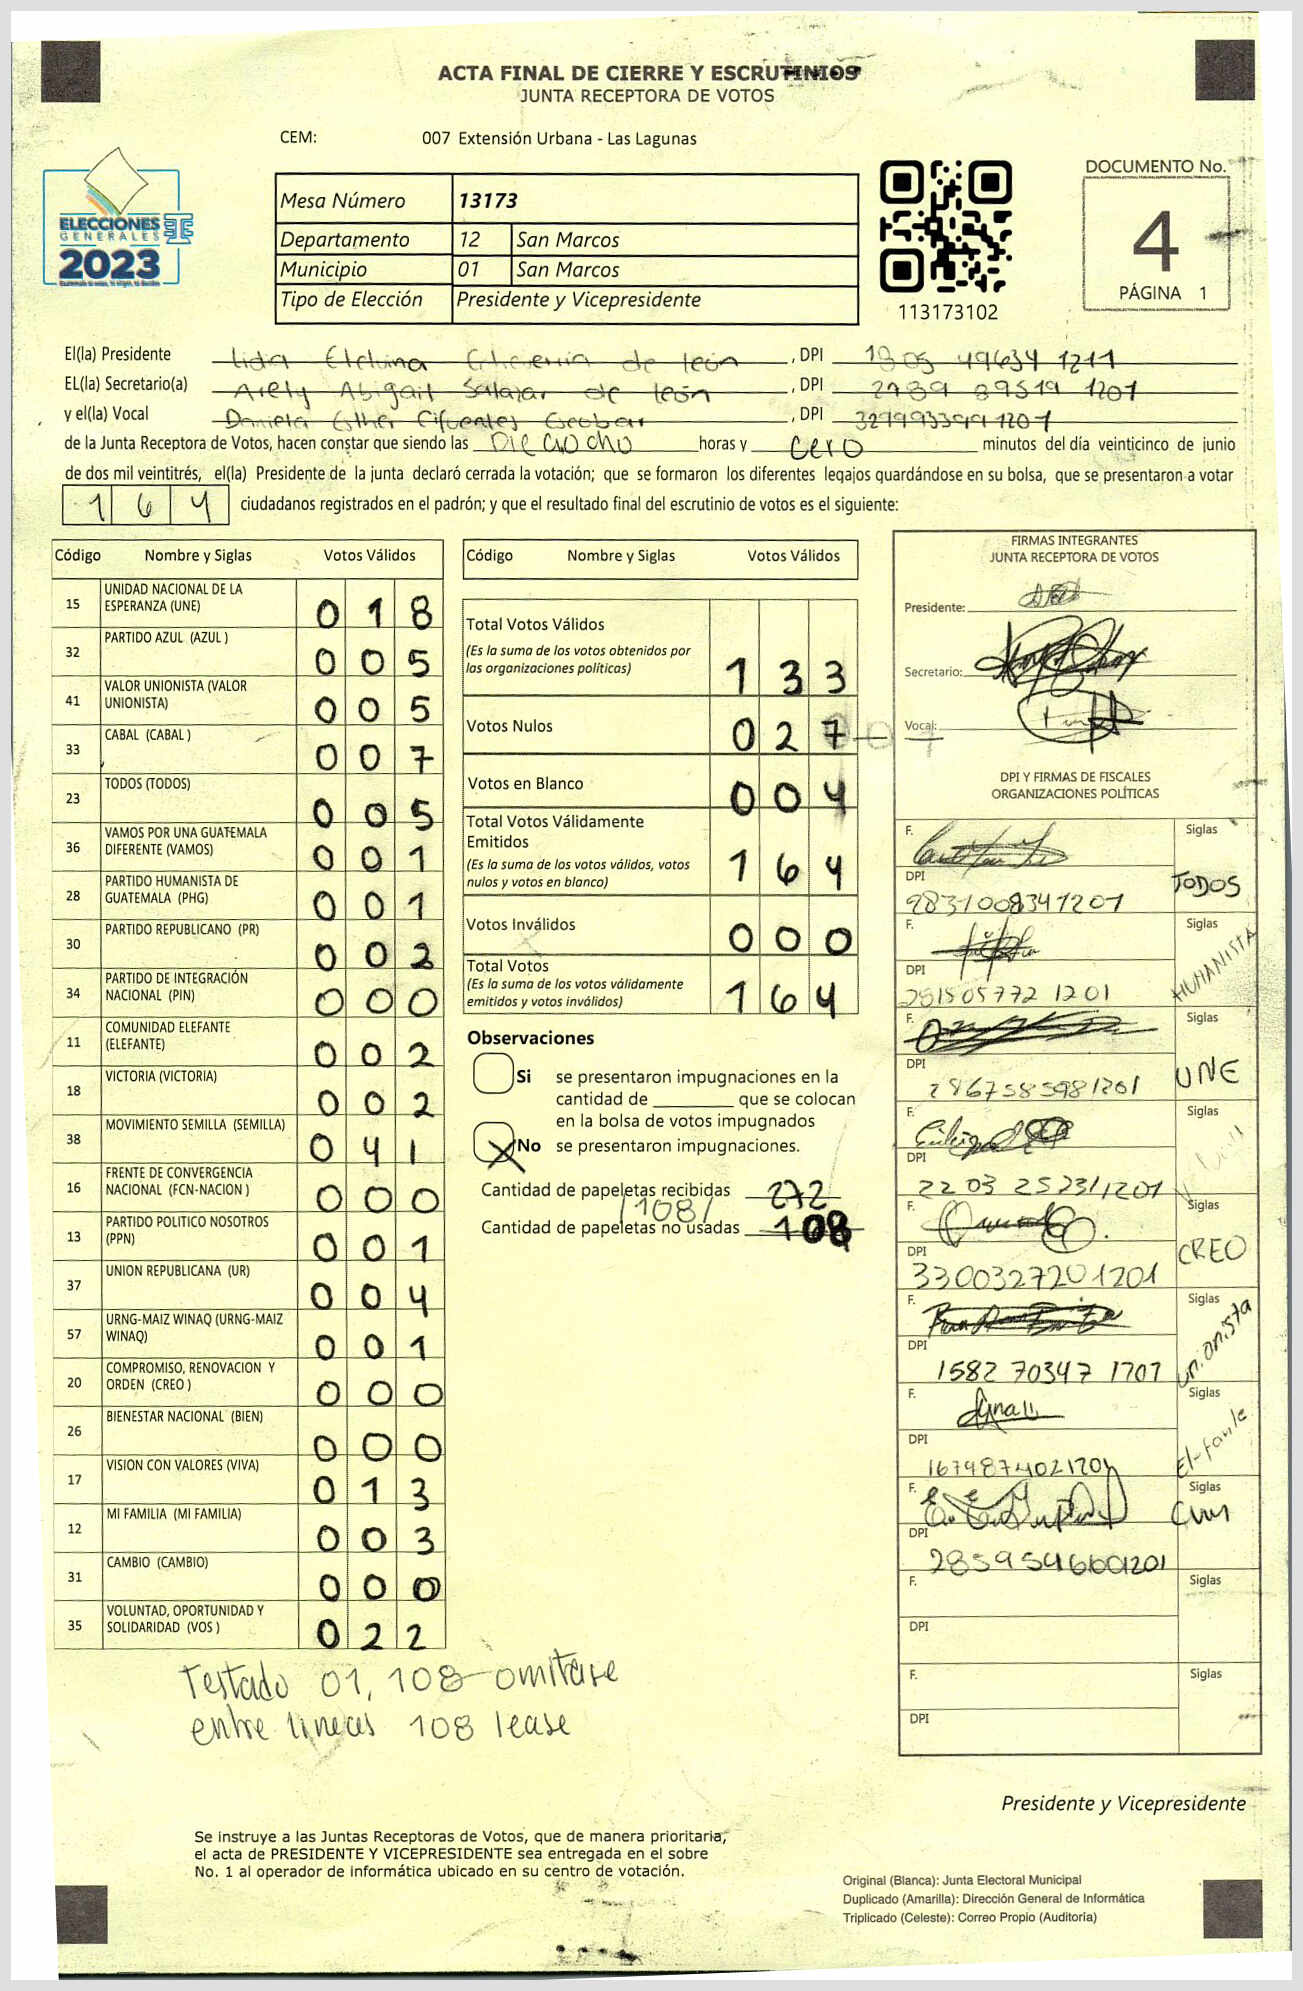 ACTA FINAL DE CIERRE Y ESCRUTINIOS
JUNTA RECEPTORA DE VOTOS
CEM: 007 Extensión Urbana - Las Lagunas
ELECCIONES
GENERALES
2023
Mesa Número 13173
Departamento 12 San Marcos
Municipio 01 San Marcos
Tipo de Elección Presidente y Vicepresidente
113173102
DOCUMENTO No.
4
PÁGINA 1
El(la) Presidente Lidia de león , DPI 1211
EL(la) Secretario(a) Arely Abigail Salazar de león , DPI 2789 89519 1201
y el(la) Vocal Daniela Esther Cifuentes Escobar , DPI 329993399 1201
de la Junta Receptora de Votos, hacen constar que siendo las Dieciocho horas y cero minutos del día veinticinco de junio
de dos mil veintitrés, el(la) Presidente de la junta declaró cerrada la votación; que se formaron los diferentes legajos quardándose en su bolsa, que se presentaron a votar
1 6 4 ciudadanos registrados en el padrón; y que el resultado final del escrutinio de votos es el siguiente:
Código Nombre y Siglas Votos Válidos
15 UNIDAD NACIONAL DE LA
ESPERANZA (UNE) 0 1 8
32 PARTIDO AZUL (AZUL ) 0 0 5
41 VALOR UNIONISTA (VALOR
UNIONISTA) 0 0 5
33 CABAL (CABAL ) 0 0 7
23 TODOS (TODOS) 0 0 5
36 VAMOS POR UNA GUATEMALA
DIFERENTE (VAMOS) 0 0 1
28 PARTIDO HUMANISTA DE
GUATEMALA (PHG) 0 0 1
30 PARTIDO REPUBLICANO (PR) 0 0 2
34 PARTIDO DE INTEGRACIÓN
NACIONAL (PIN) 0 0 0
11 COMUNIDAD ELEFANTE
(ELEFANTE) 0 0 2
18 VICTORIA (VICTORIA) 0 0 2
38 MOVIMIENTO SEMILLA (SEMILLA) 0 4 1
16 FRENTE DE CONVERGENCIA
NACIONAL (FCN-NACION ) 0 0 0
13 PARTIDO POLITICO NOSOTROS
(PPN) 0 0 1
37 UNION REPUBLICANA (UR) 0 0 4
57 URNG-MAIZ WINAQ (URNG-MAIZ
WINAQ) 0 0 1
20 COMPROMISO, RENOVACION Y
ORDEN (CREO ) 0 0 0
26 BIENESTAR NACIONAL (BIEN) 0 0 0
17 VISION CON VALORES (VIVA) 0 1 3
12 MI FAMILIA (MI FAMILIA) 0 0 3
31 CAMBIO (CAMBIO) 0 0 0
35 VOLUNTAD, OPORTUNIDAD Y
SOLIDARIDAD (VOS ) 0 2 2
Testado 01, 108 omitase
entre lineas 108 lease
Código Nombre y Siglas Votos Válidos
Total Votos Válidos
(Es la suma de los votos obtenidos por
las organizaciones políticas) 1 3 3
Votos Nulos 0 2 7
Votos en Blanco 0 0 4
Total Votos Válidamente
Emitidos
(Es la suma de los votos válidos, votos
nulos y votos en blanco) 1 6 4
Votos Inválidos 0 0 0
Total Votos
(Es la suma de los votos válidamente
emitidos y votos inválidos) 1 6 4
Observaciones
Si se presentaron impugnaciones en la
cantidad de ________ que se colocan
en la bolsa de votos impugnados
X No se presentaron impugnaciones.
Cantidad de papeletas recibidas 272
/108/
Cantidad de papeletas no usadas 108
FIRMAS INTEGRANTES
JUNTA RECEPTORA DE VOTOS
Presidente:
Secretario:
Vocal:
DPI Y FIRMAS DE FISCALES
ORGANIZACIONES POLÍTICAS
F. Siglas
DPI TODOS
2831008341201
F. Siglas
DPI HUMANISTA
251505772 1201
F. Siglas
DPI UNE
2867585981201
F. Siglas
DPI
22 03 25231 1201
F. Siglas
DPI CREO
3300327201201
F. Siglas
DPI unionista
1582 70347 1707
F. Siglas
DPI El-fante
1679874021201
F. Siglas
DPI
2859546601201
F. Siglas
DPI
F. Siglas
DPI
Presidente y Vicepresidente
Se instruye a las Juntas Receptoras de Votos, que de manera prioritaria,
el acta de PRESIDENTE Y VICEPRESIDENTE sea entregada en el sobre
No. 1 al operador de informática ubicado en su centro de votación.
Original (Blanca): Junta Electoral Municipal
Duplicado (Amarilla): Dirección General de Informática
Triplicado (Celeste): Correo Propio (Auditoría)